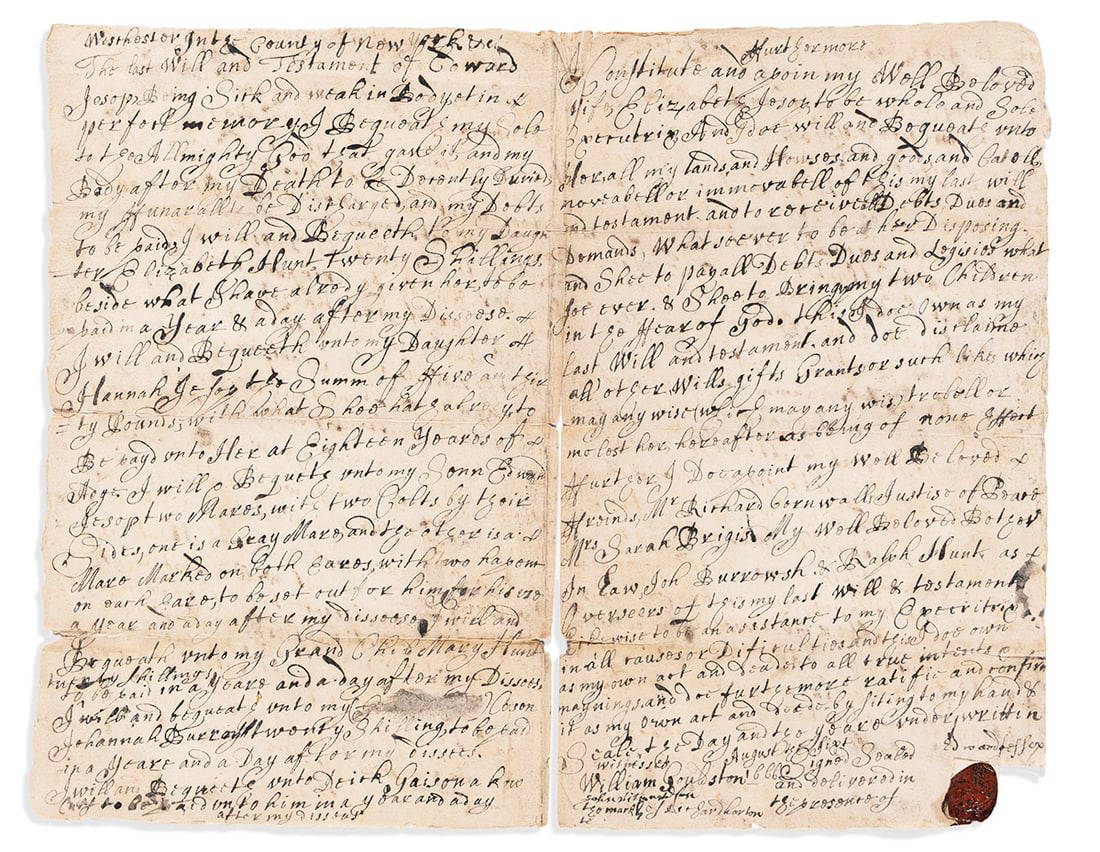 Westchester In the County of New Yorke
The last Will and Testament of Edward
Jesop, Being Sick and weak in Body yet in &
perfect memory, I Bequeath my Sole
to the Allmighty God that gave it and my
Body after my Death to be Decently Buried
my Funarall to be Discharged, and my Debts
to be paid, I will and Bequeeth to my Daugh
ter Elizabeth Hunt, Twenty Shillings,
beside what I have alredy given her, to be
paid in a Year & a day after my Dissese. &
I will and Bequeeth vnto my Daughter &
Hannah Jesop the Summ of Five and thir
ty Pounds, with what Shee hath alredy, to
Be payd vnto Her at Eighteen Yeares of &
Age. I will & Bequeth vnto my Sonn Edward
Jesop two Mares, with two Colts by their
Sides, one is a Gray Mare, and the other is a &
Mare Marked on both Eares, with two
on each Eare, to be set out for him for his use
a year and a day after my disseese I will and
Bequeath vnto my Grand Chi Mary Hunt
twenty shillings
to be paid in a Yeare and a day after my Disses,
I will and bequeath vnto my Coson
Johannah Burras twenty Shilling to be paid
in a Yeare and a Day after my
I will and Bequeth vnto Derick Gaison a
to be vnto him in a year and a day
after my diseas
Furthermore
Constitute and apoin my Well Beloved
Wife, Elizabeth Jesop to be whole and Sole
Executrix, And I doe will and Bequeath vnto
Her, all my lands, and Howses, and goods, and Catell
moveabell or immovabell of this my last will
and testament, and to receive all Debts, Dues and
Demands, What seever to be at her Disposing.
and Shee to pay all Debts, Dues and Legisies what
soe ever. & Shee to Bring my two Children
in the Fear of God. this I doe Own as my
last Will and testament. and doe disclaime
all other Wills, gifts Grants or such like, which
may any wise (which may any wis) trobell or
molest her, hereafter, as being of none Effect
Further, I Doe apoint my Well Beloved &
Freinds, Mr Richard Cornwall, Justise of Peace
Mrs Sarah Brigis, My Well Beloved Bother
In law, Joh Burrowsh & Ralph Hunt, as &
Overseers of this my last Will & testament
Likewise to be an asistance to my Execritrix
in all causes or Difficulties and this I doe own
as my own act and deede, to all true intents &
meanings, and doe furthermore ratifie and confirm
it as my own act and deede, by siting to my hand &
Seale, the Day and the yeare under writtin
witnesses August the 1666
Signed Sealed
and delivered in
the presence of
William
the mark of Richard horton
Edward Jessop